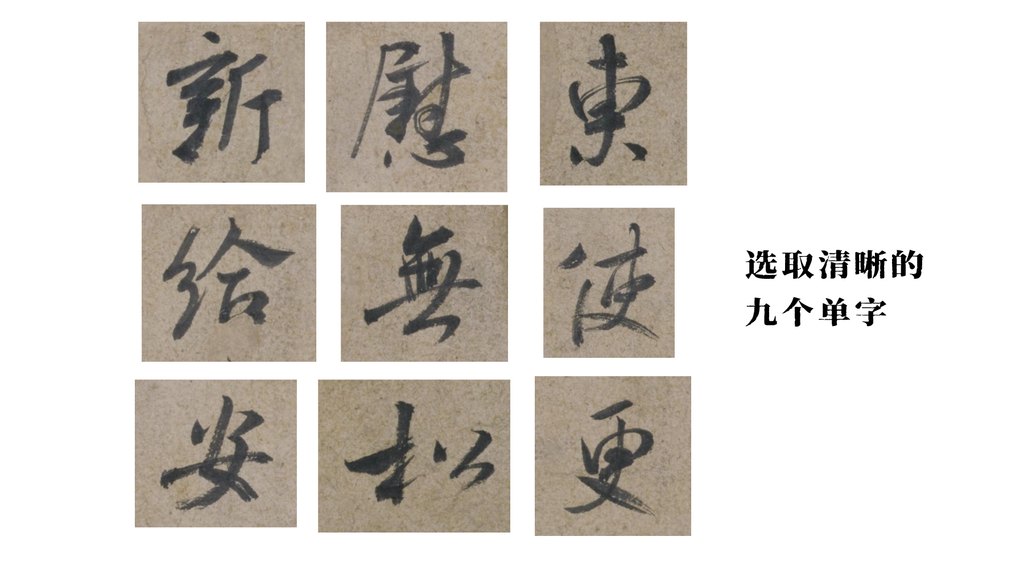 新慰東
給無使
安松更
选取清晰的
九个单字